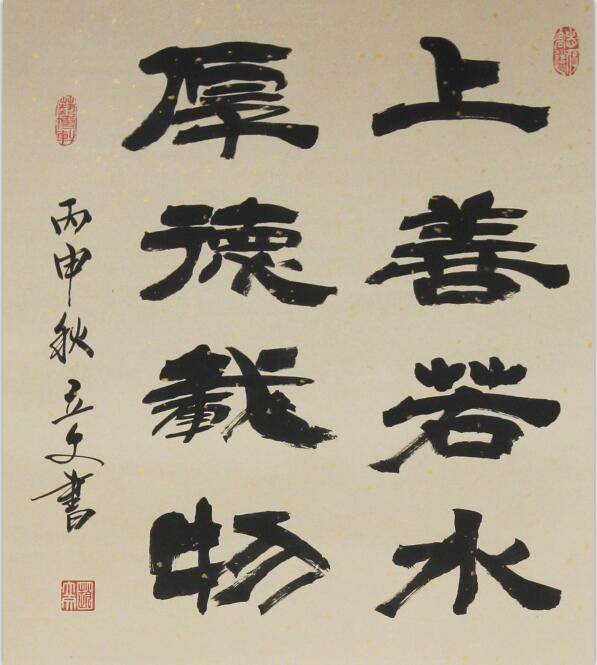 上善若水
厚德载物
丙申秋立文書